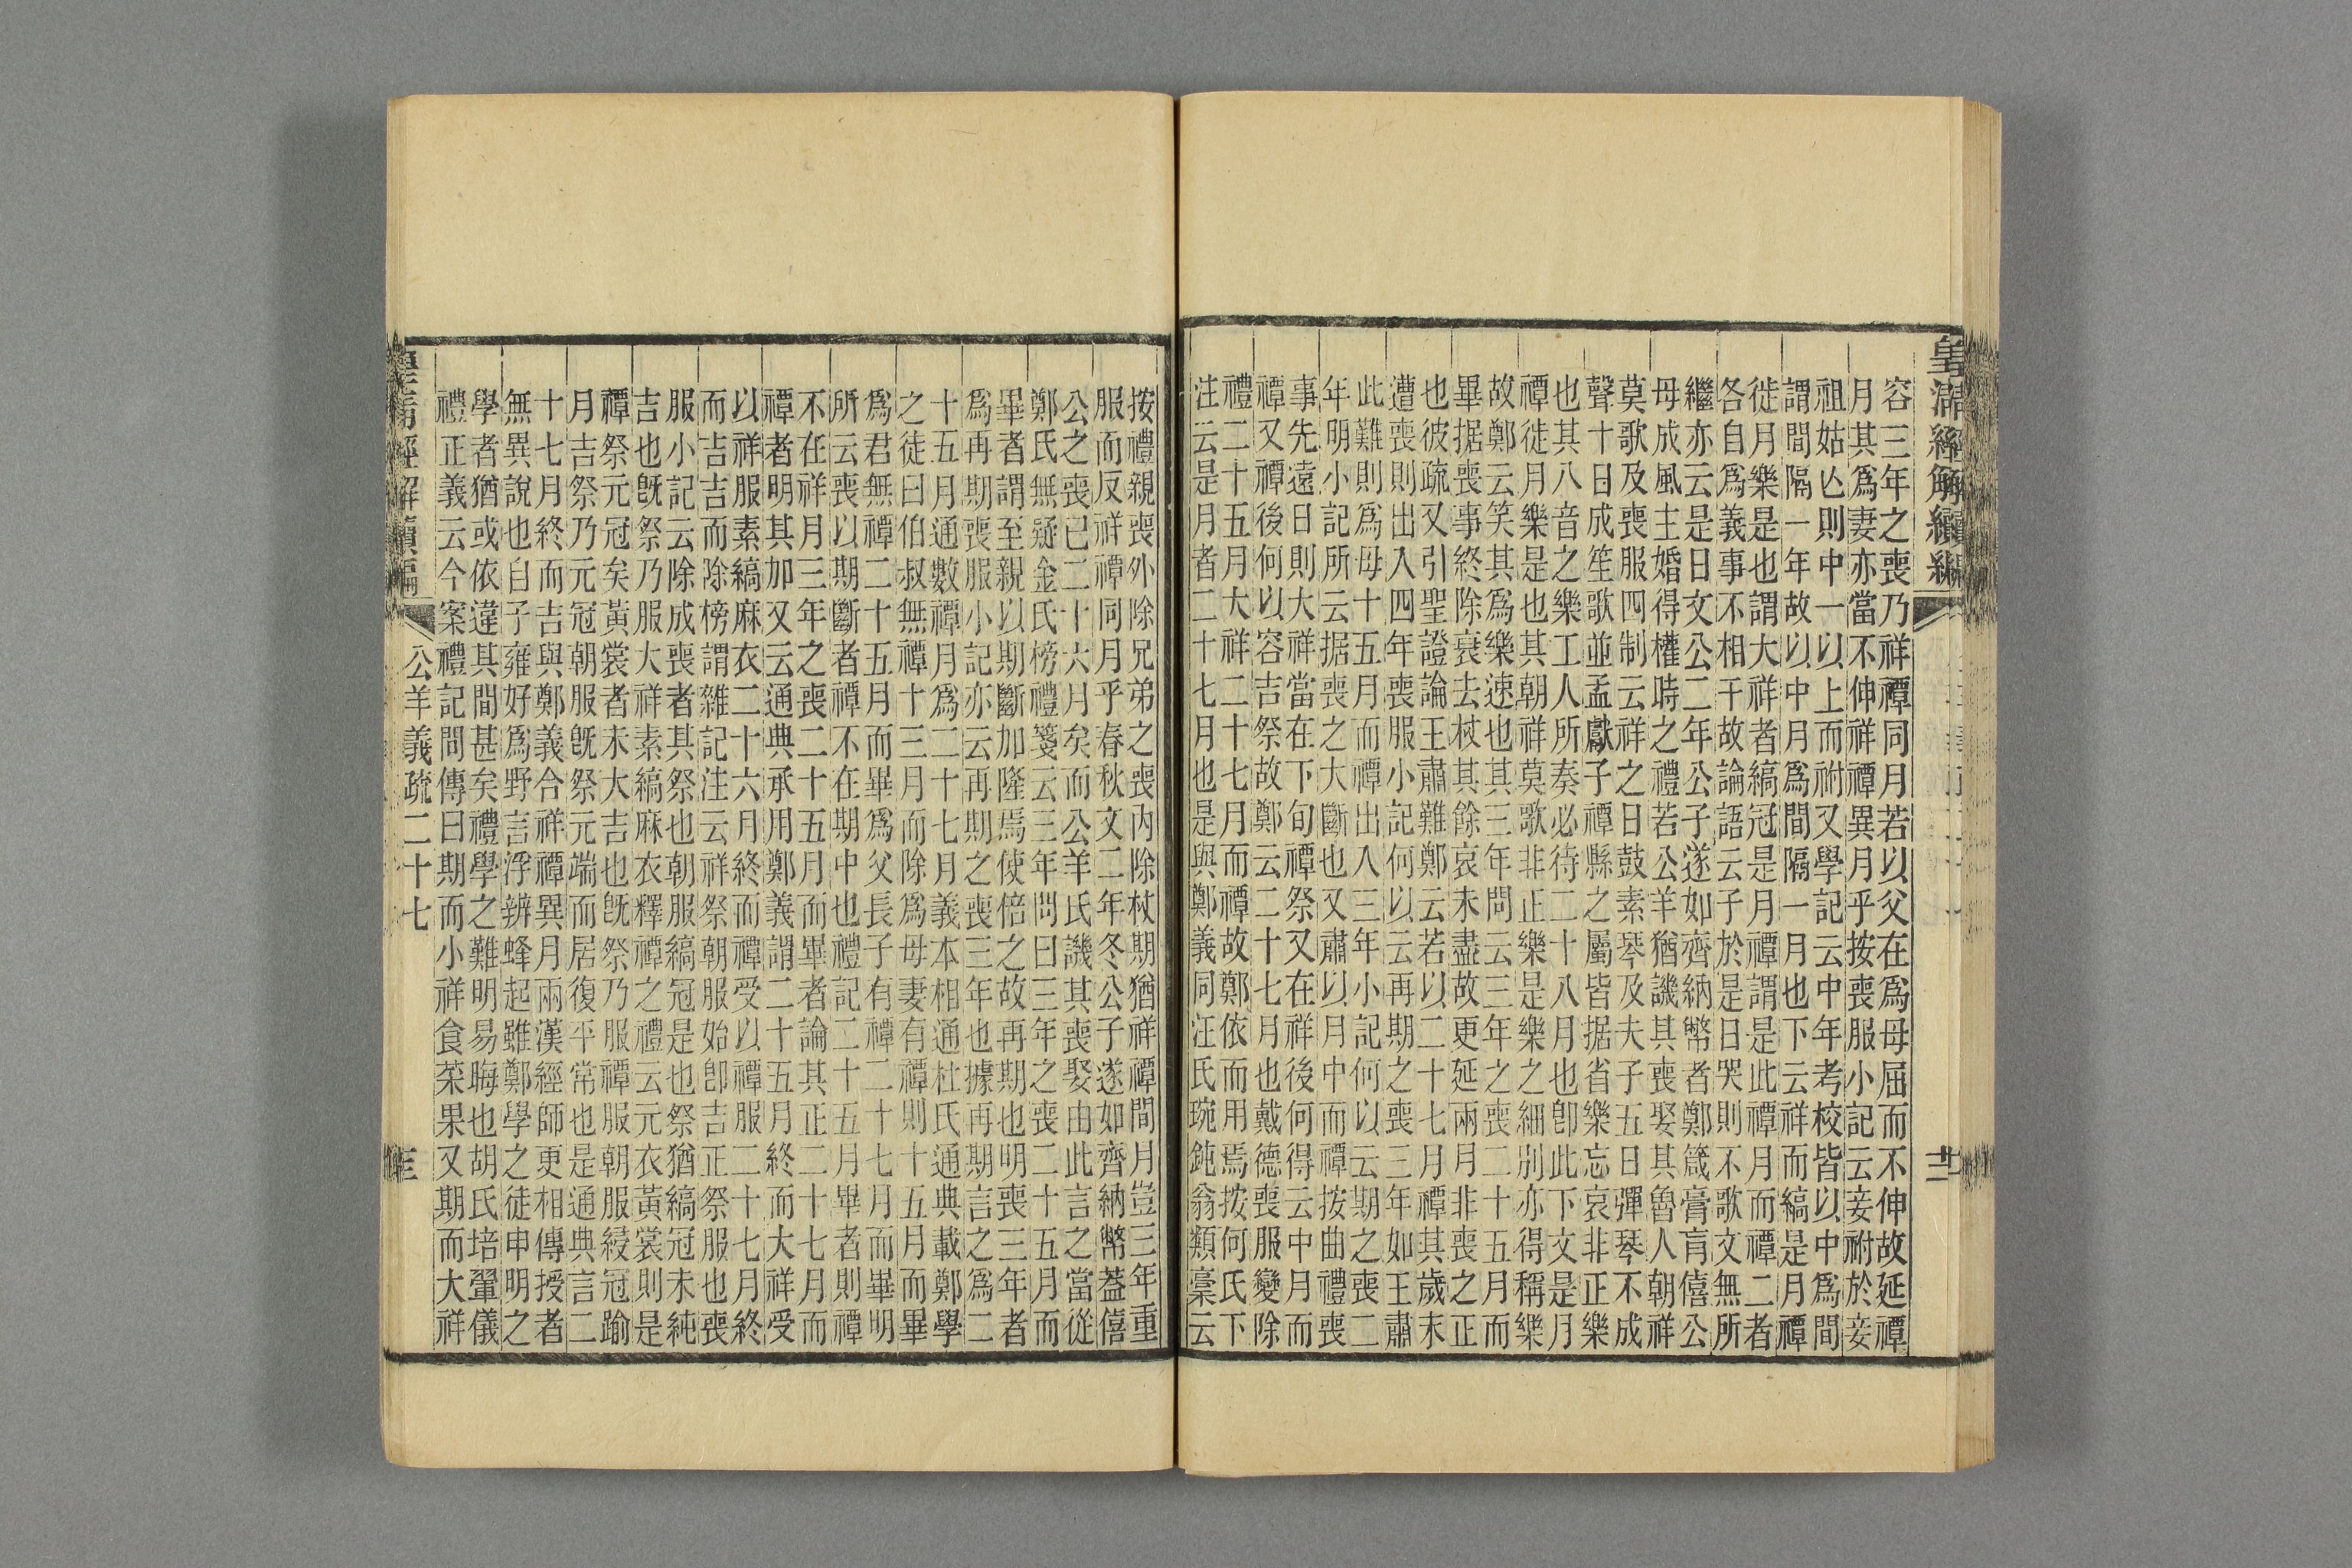 皇清經解續編
容三年之喪乃祥禫同月若以父在爲母屈而不伸故延禫
月其爲妻亦當不伸祥禫異月乎按喪服小記云妾祔於妾
祖姑亾則中一以上而祔又學記云中年考校皆以中爲間
謂間隔一年故以中月爲間隔一月也下云祥而縞是月禫
徙月樂是也謂大祥者縞冠是月禫謂是此禫月而禫二者
各自爲義事不相干故論語云子於是日哭則不歌文無所
繼亦云是日文公二年公子遂如齊納幣者鄭箴膏肓僖公
母成風主婚得權時之禮若公羊猶譏其喪娶其魯人朝祥
莫歌及喪服四制云祥之日鼓素琴及夫子五日彈琴不成
聲十日成笙歌並孟獻子禫縣之屬皆据省樂忘哀非正樂
也其八音之樂工人所奏必待二十八月也卽此下文是月
禫徙月樂是也其朝祥莫歌非正樂是樂之細別亦得稱樂
故鄭云笑其爲樂速也其三年問云三年之喪二十五月而
畢据喪事終除衰去杖其餘哀未盡故更延兩月非喪之正
也彼疏又引聖證論王肅難鄭云若以二十七月禫其歲末
遭喪則出入四年喪服小記何以云再期之喪三年如王肅
此難則爲母十五月而禫出入三年小記何以云期之喪二
年明小記所云据喪之大斷也又肅以月中而禫按曲禮喪
事先遠日則大祥當在下旬禫祭又在祥後何得云中月而
禫又禫後何以容吉祭故鄭云二十七月也戴德喪服變除
禮二十五月大祥二十七月而禫故鄭依而用焉按何氏下
注云是月者二十七月也是與鄭義同汪氏琬鈍翁類稾云
按禮親喪外除兄弟之喪內除杖期猶祥禫間月豈三年重
服而反祥禫同月乎春秋文二年冬公子遂如齊納幣蓋僖
公之喪已二十六月矣而公羊氏譏其喪娶由此言之當從
鄭氏無疑金氏榜禮箋云三年問曰三年之喪二十五月而
畢者謂至親以期斷加隆焉使倍之故再期也明喪三年者
爲再期喪服小記亦云再期之喪三年也據再期言之爲二
十五月通數禫月爲二十七月義本相通杜氏通典載鄭學
之徒曰伯叔無禫十三月而除爲母妻有禫則十五月而畢
爲君無禫二十五月而畢爲父長子有禫二十七月而畢明
所云喪以期斷者禫不在期中也禮記二十五月畢者則禫
不在祥月三年之喪二十五月而畢者論其正二十七月而
禫者明其加又云通典承用鄭義謂二十五月終而大祥受
以祥服素縞麻衣二十六月終而禫受以禫服二十七月終
而吉吉而除榜謂雜記注云祥祭朝服始卽吉正祭服也喪
服小記云除成喪者其祭也朝服縞冠是也祭猶縞冠未純
吉也旣祭乃服大祥素縞麻衣釋禫之禮云元衣黃裳則是
禫祭元冠矣黃裳者未大吉也旣祭乃服禫服朝服綅冠踰
月吉祭乃元冠朝服旣祭元端而居復平常也是通典言二
十七月終而吉與鄭義合祥禫異月兩漢經師更相傳授者
無異說也自子雍好爲野言浮辨蜂起雖鄭學之徒申明之
學者猶或依違其間甚矣禮學之難明易晦也胡氏培翬儀
禮正義云今案禮記問傳曰期而小祥食菜果又期而大祥
皇清經解續編
公羊義疏二十七